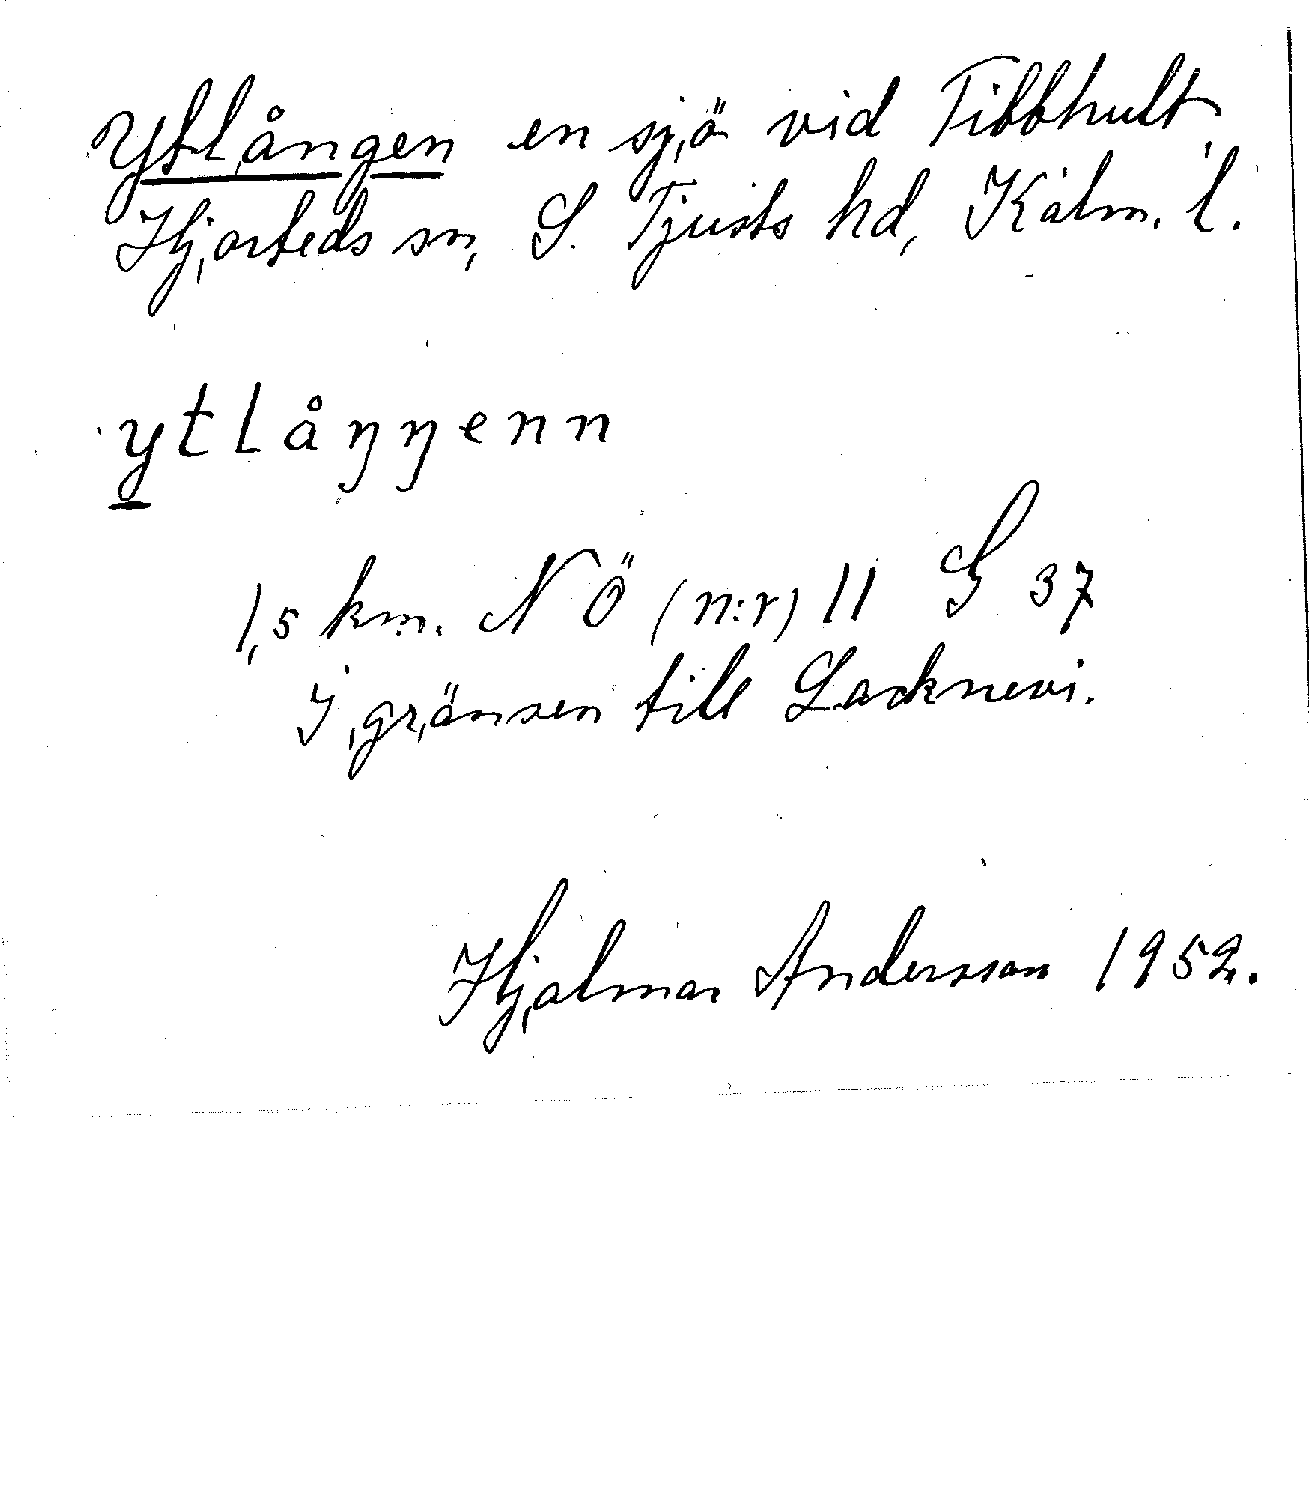 Ytlången en sjö vid Tibbhult,
Hjorteds sn, S. Tjusts hd, Kalm. l.
ytlåŋŋenn
1,5 km. NÖ (n:r) 11 G 37
I gränsen till Lacknevi.
Hjalmar Andersson 1952.